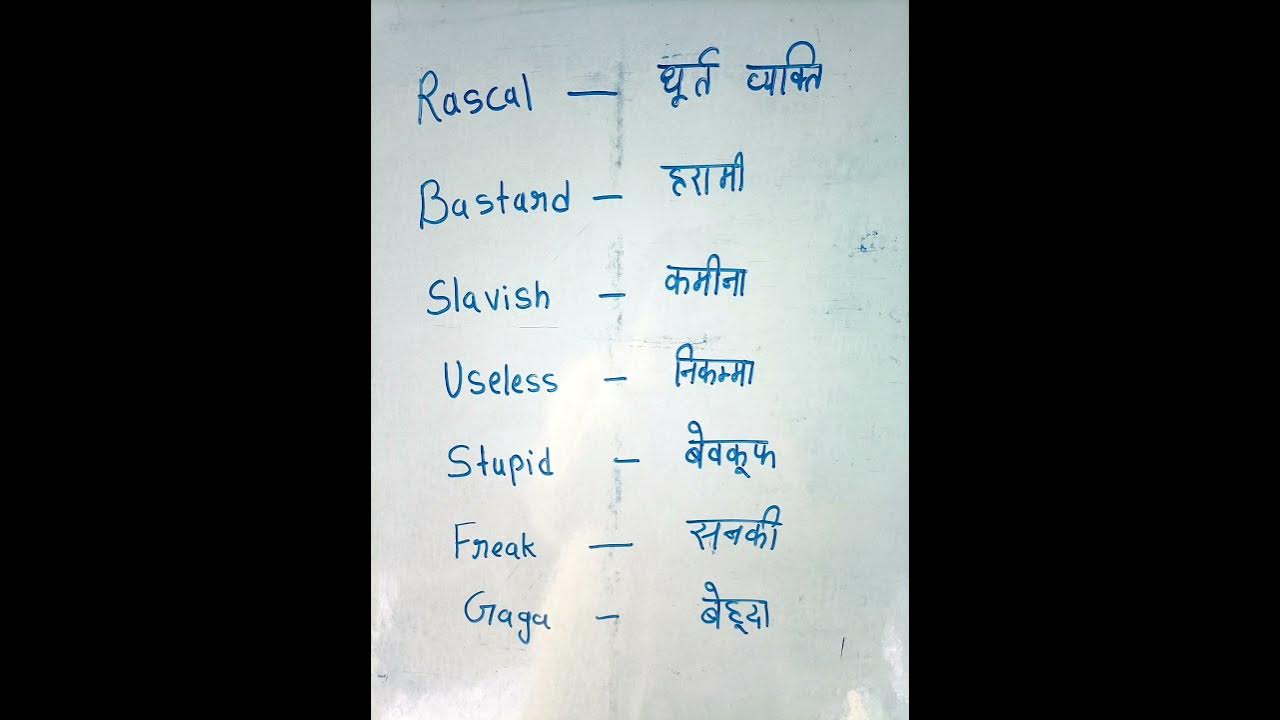 Rascal — धूर्त व्यक्ति
Bastard - हरामी
Slavish - कमीना
Useless - निकम्मा
Stupid - बेवकूफ
Freak — सनकी
Gaga - बेहूदा